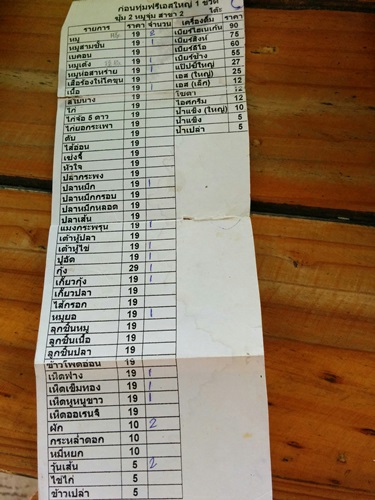 ก่อนทุ่มฟรีเอสใหญ่ 1 ขวด
ซุ้ม 2 หมูจุ่ม สาขา 2 โต๊ะ
รายการ ราคา จำนวน เครื่องดื่ม ราคา
หมู 19 เบียร์ไฮเนเก้น 90
หมูสามชั้น 19 1 เบียร์สิงห์ 75
เบคอน 19 เบียร์ลีโอ 60
หมูเด้ง 19 1 เบียร์ช้าง 55
หมูห่อสาหร่าย 19 1 แป๊ปซี่ใหญ่ 27
เสือร้องไห้โคขุน 19 เอส (ใหญ่) 25
เนื้อ 19 1 เอส (เล็ก) 12
สไบนาง 19 โซดา 12
ไก่ 19 ไอศกรีม 12
ไก่จ๊อ 5 ดาว 19 น้ำแข็ง (ใหญ่) 10
ไก่ยอกระเพา 19 น้ำแข็ง 5
ตับ 19 น้ำเปล่า 5
ไส้อ่อน 19
เซ่งจี๊ 19
หัวใจ 19
ปลากระพง 19
ปลาหมึก 19 1
ปลาหมึกกรอบ 19
ปลาหมึกหลอด 19
ปลาเส้น 19
แมงกะพรุน 19 1
เต้าหู้ปลา 19
เต้าหู้ไข่ 19 1
ปูอัด 19 1
กุ้ง 29 1
เกี้ยวกุ้ง 19 1
เกี้ยวปลา 19
ไส้กรอก 19
หมูยอ 19 1
ลูกชิ้นหมู 19
ลูกชิ้นเนื้อ 19
ลูกชิ้นปลา 19
ข้าวโพดอ่อน 19
เห็ดฟาง 19 1
เห็ดเข็มทอง 19 1
เห็ดหูหนูขาว 19 1
เห็ดออเรนจิ 19
ผัก 10 2
กระหล่ำดอก 10
หมี่หยก 10
วุ้นเส้น 5 2
ไข่ไก่ 5
ข้าวเปล่า 5